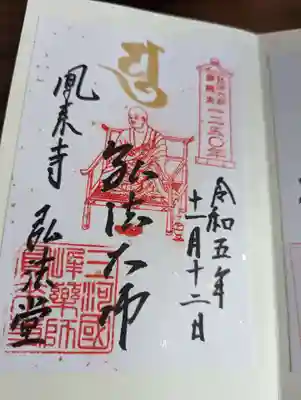 一二五〇年
令和五年
十一月十二日
弘法大師
鳳来寺 弘法堂
三河國
峰薬師